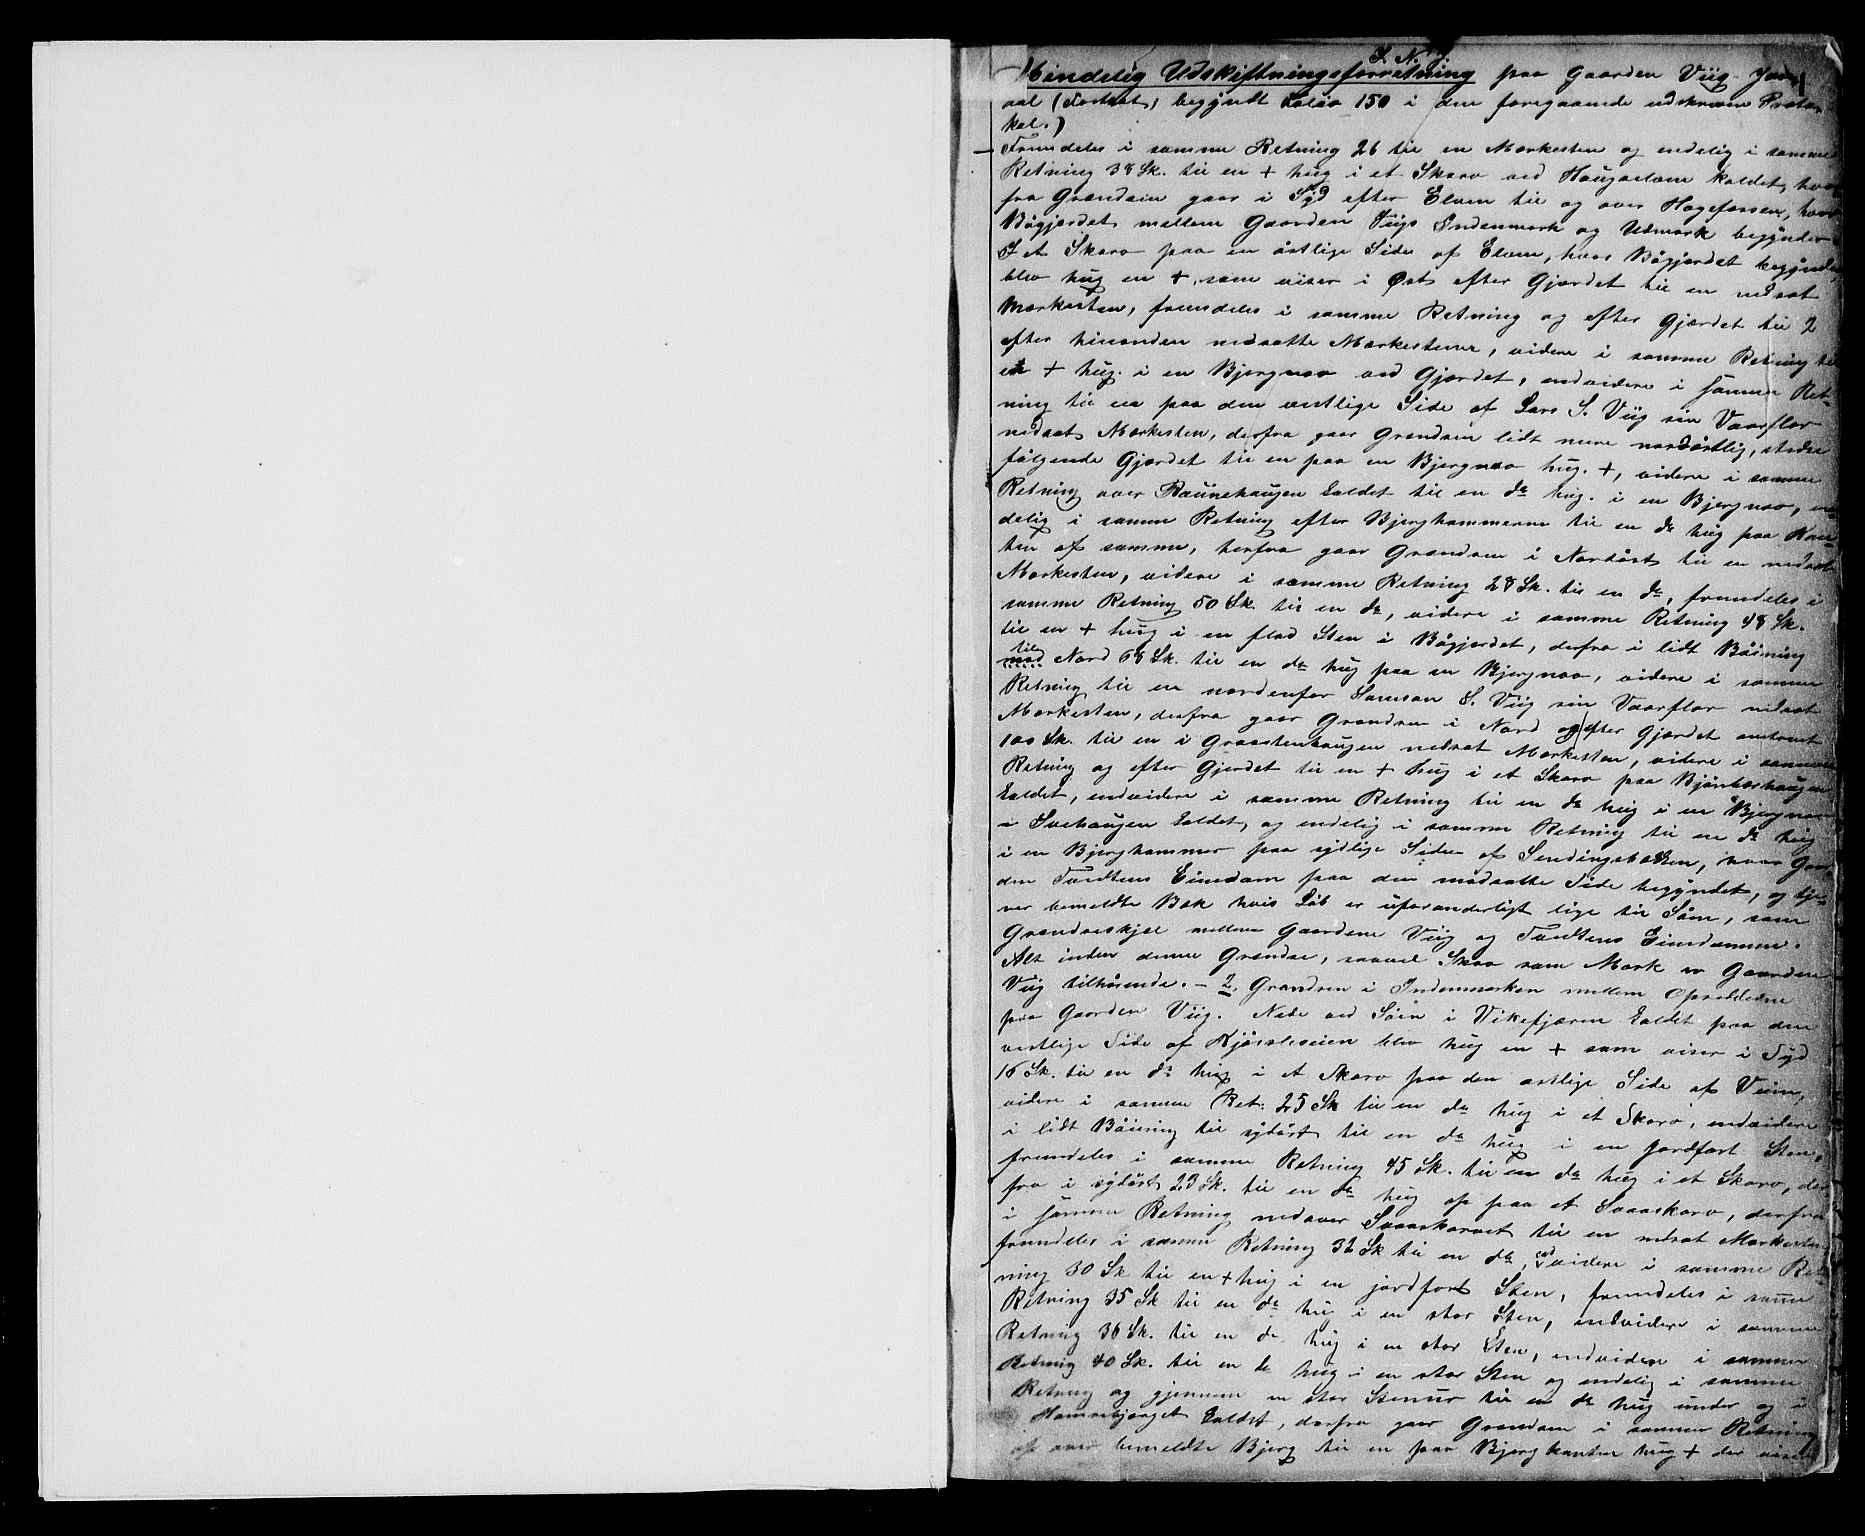 I. N. J.
Mindelig Udskiftningsforretning paa Gaarden Viig
aal (Fortsat, begyndt Folio 150 i den foregaaende udskrevne Proto-
kol.)
Fremdeles i samme Retning 26 til en Mærkesten og endelig i samme
Retning 38 Sk. til en + hug i et Skarv ved Haugaelven kaldet, hvor
fra Grændsen gaar i Syd efter Elven til og over Hagefossen, hvor
Bøgjerdet mellem Gaarden Viigs Indenmark og Udmark begynder.
I et Skarv paa en østlige Side af Elven, hvor Bøgjerdet begynder,
blev hug en +, som viser i Øst efter Gjærdet til en nedsat
Mærkesten, fremdeles i samme Retning og efter Gjærdet til 2
efter hinanden nedsatte Mærkestener, videre i samme Retning til
en + hug. i en Bjergnov ved Gjærdet, endvidere i samme Ret-
ning til en paa den vestlige Side af Lars S. Viig sin Vaarflor
nedsat Mærkesten, derfra gaar Grændsen lidt mere nordøstlig, stedse
følgende Gjærdet til en paa en Bjergnov hug. +, videre i samme
Retning over Raunehaugen kaldet til en do hug. i en Bjergnov, en-
delig i samme Retning efter Bjerghammerne til en do hug paa Kan-
ten af samme, herfra gaar Grændsen i Nordøst til en nedsat
Mærkesten, videre i samme Retning 28 Sk. til en do, fremdeles i
samme Retning 50 Sk. til en do, videre i samme Retning 48 Sk.
til en + hug i en flad Sten i Bøgjerdet, derfra i lidt Bøining
til
mod Nord 68 Sk. til en do hug paa en Bjergnov, videre i samme
Retning til en nordenfor Samson S. Viig sin Vaarflor nedsat
Mærkesten, derfra gaar Grændsen i Nord og efter Gjærdet omtrent
100 Sk. til en i Graastenhaugen nedsat Mærkesten, videre i samme
Retning og efter Gjerdet til en + hug i et Skarv paa Bjønbæshaugen
kaldet, endvidere i samme Retning til en do hug i en Bjergnov
i Svehaugen kaldet, og endelig i samme Retning til en do hug
i en Bjerghammer paa sydlige Side af Sendingsbækken, hvor Gaar-
den Tvedtens Eiendom paa den modsatte Side begyndet, og tje-
ner bemeldte Bæk hvis Løb er uforanderligt lige til Søen, som
Grændseskjel mellem Gaardene Viig og Tvedtens Eiendomme.
Alt inden denne Grændse, saavel Skov som Mark er Gaarden
Viig tilhørende. – 2, Grændsen i Indenmarken mellem Opsidderne
paa Gaarden Viig. Nede ved Søen i Vikefjæren kaldet paa den
vestlige Side af Kjørsleveien blev hug en + som viser i Syd
16 Sk. til en do hug i et Skarv paa den østlige Side af Veien,
videre i samme Ret: 25 Sk til en do hug i et Skarv, endvidere
i lidt Bøining til sydøst til en do hug i en jordfast Sten,
fremdeles i samme Retning 45 Sk. til en do hug i et Skarv, der-
fra i sydøst 23 Sk. til en do hug op paa et Svaaskarv, derfra
i samme Retning nedover Svaaskarvet til en nedsat Mærkesten
fremdeles i samme Retning 32 Sk til en do, endvidere i samme Ret-
ning 30 Sk til en + hug i en jordfast Sten, fremdeles i samme
Retning 35 Sk til en do hug i en stor Sten, endvidere i samme
Retning 36 Sk. til en do hug i en stor Sten, endvidere i samme
Retning 40 Sk. til en do hug i en stor Sten og endelig i samme
Retning og gjennem en stor Stenur til en do hug under og i
Hamrebjerget kaldet, derfra gaar Grændsen i samme Retning
op over bemeldte Bjerg til en paa Bjergkanten hug + der viser